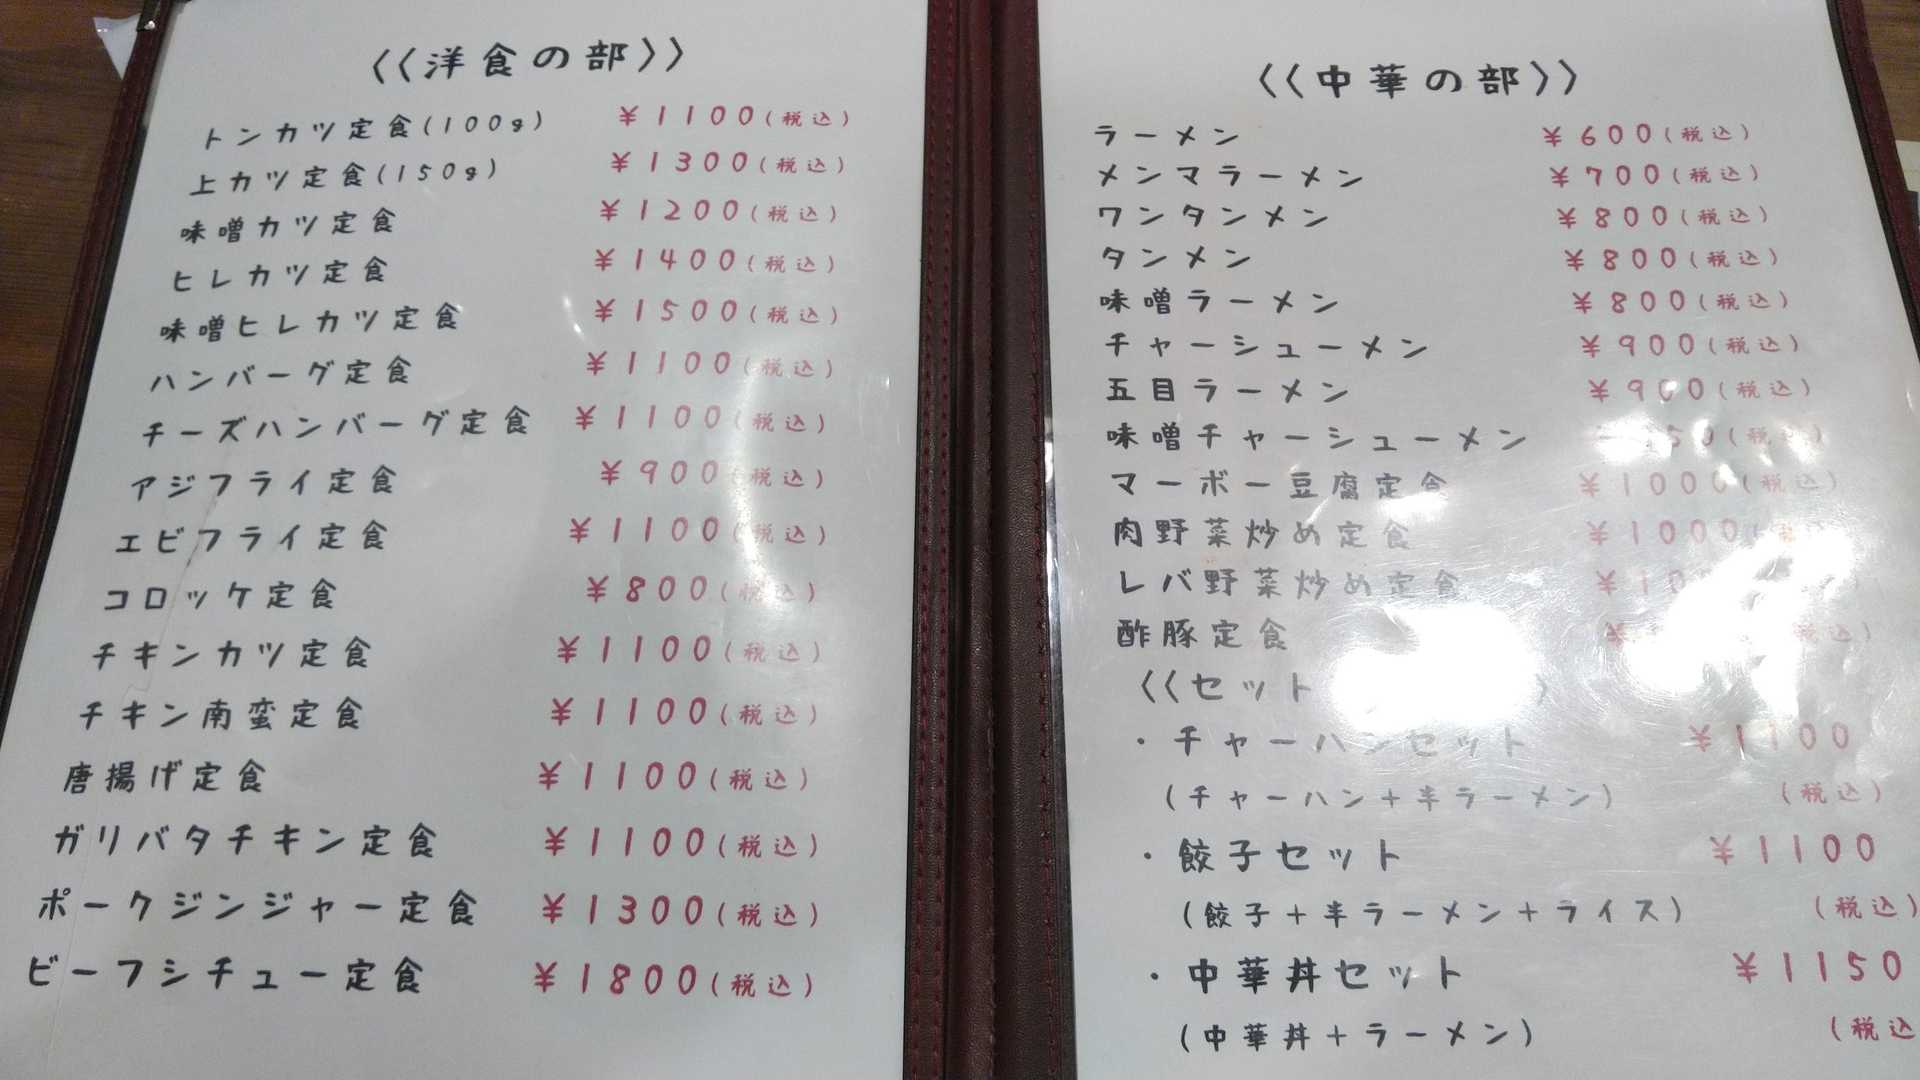 《洋食の部》
トンカツ定食(100g) ¥1100(税込)
上カツ定食(150g) ¥1300(税込)
味噌カツ定食 ¥1200(税込)
ヒレカツ定食 ¥1400(税込)
味噌ヒレカツ定食 ¥1500(税込)
ハンバーグ定食 ¥1100(税込)
チーズハンバーグ定食 ¥1100(税込)
アジフライ定食 ¥900(税込)
エビフライ定食 ¥1100(税込)
コロッケ定食 ¥800(税込)
チキンカツ定食 ¥1100(税込)
チキン南蛮定食 ¥1100(税込)
唐揚げ定食 ¥1100(税込)
ガリバタチキン定食 ¥1100(税込)
ポークジンジャー定食 ¥1300(税込)
ビーフシチュー定食 ¥1800(税込)
《中華の部》
ラーメン ¥600(税込)
メンマラーメン ¥700(税込)
ワンタンメン ¥800(税込)
タンメン ¥800(税込)
味噌ラーメン ¥800(税込)
チャーシューメン ¥900(税込)
五目ラーメン ¥900(税込)
味噌チャーシューメン (税込)
マーボー豆腐定食 ¥1000(税込)
肉野菜炒め定食 ¥1000
レバ野菜炒め定食
酢豚定食
《セット
・チャーハンセット ¥1100
(チャーハン+半ラーメン) (税込)
・餃子セット ¥1100
(餃子+半ラーメン+ライス) (税込)
・中華丼セット ¥1150
(中華丼+ラーメン) (税込